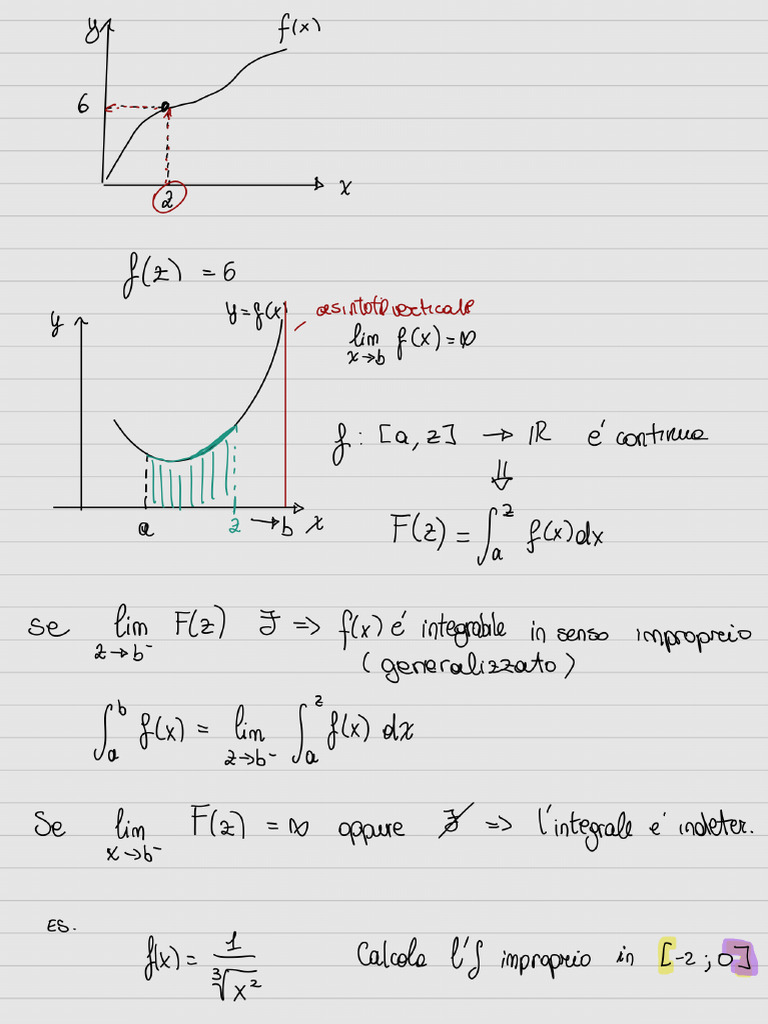 y f(x)
6
2 x
f(2) = 6
y y=f(x) asintoto verticale
lim x→b f(x) = ∞
f : [a, z] → ℝ é continua
⇓
a z → b x
F(z) = ∫_a^z f(x)dx
Se lim z→b⁻ F(z) ∃ => f(x) é integrabile in senso improprio
(generalizzato)
∫_a^b f(x) = lim z→b⁻ ∫_a^z f(x) dx
Se lim x→b⁻ F(z) = ∞ oppure ∄ => l'integrale é indeter.
ES.
f(x) = 1/∛x² Calcola l'∫ improprio in [-2 ; 0]